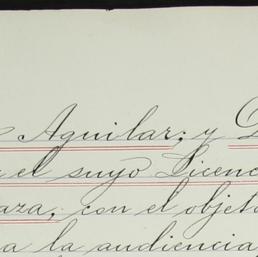 Aguilar; y
el suyo Licenc
aza, con el objeto
a la audiencia